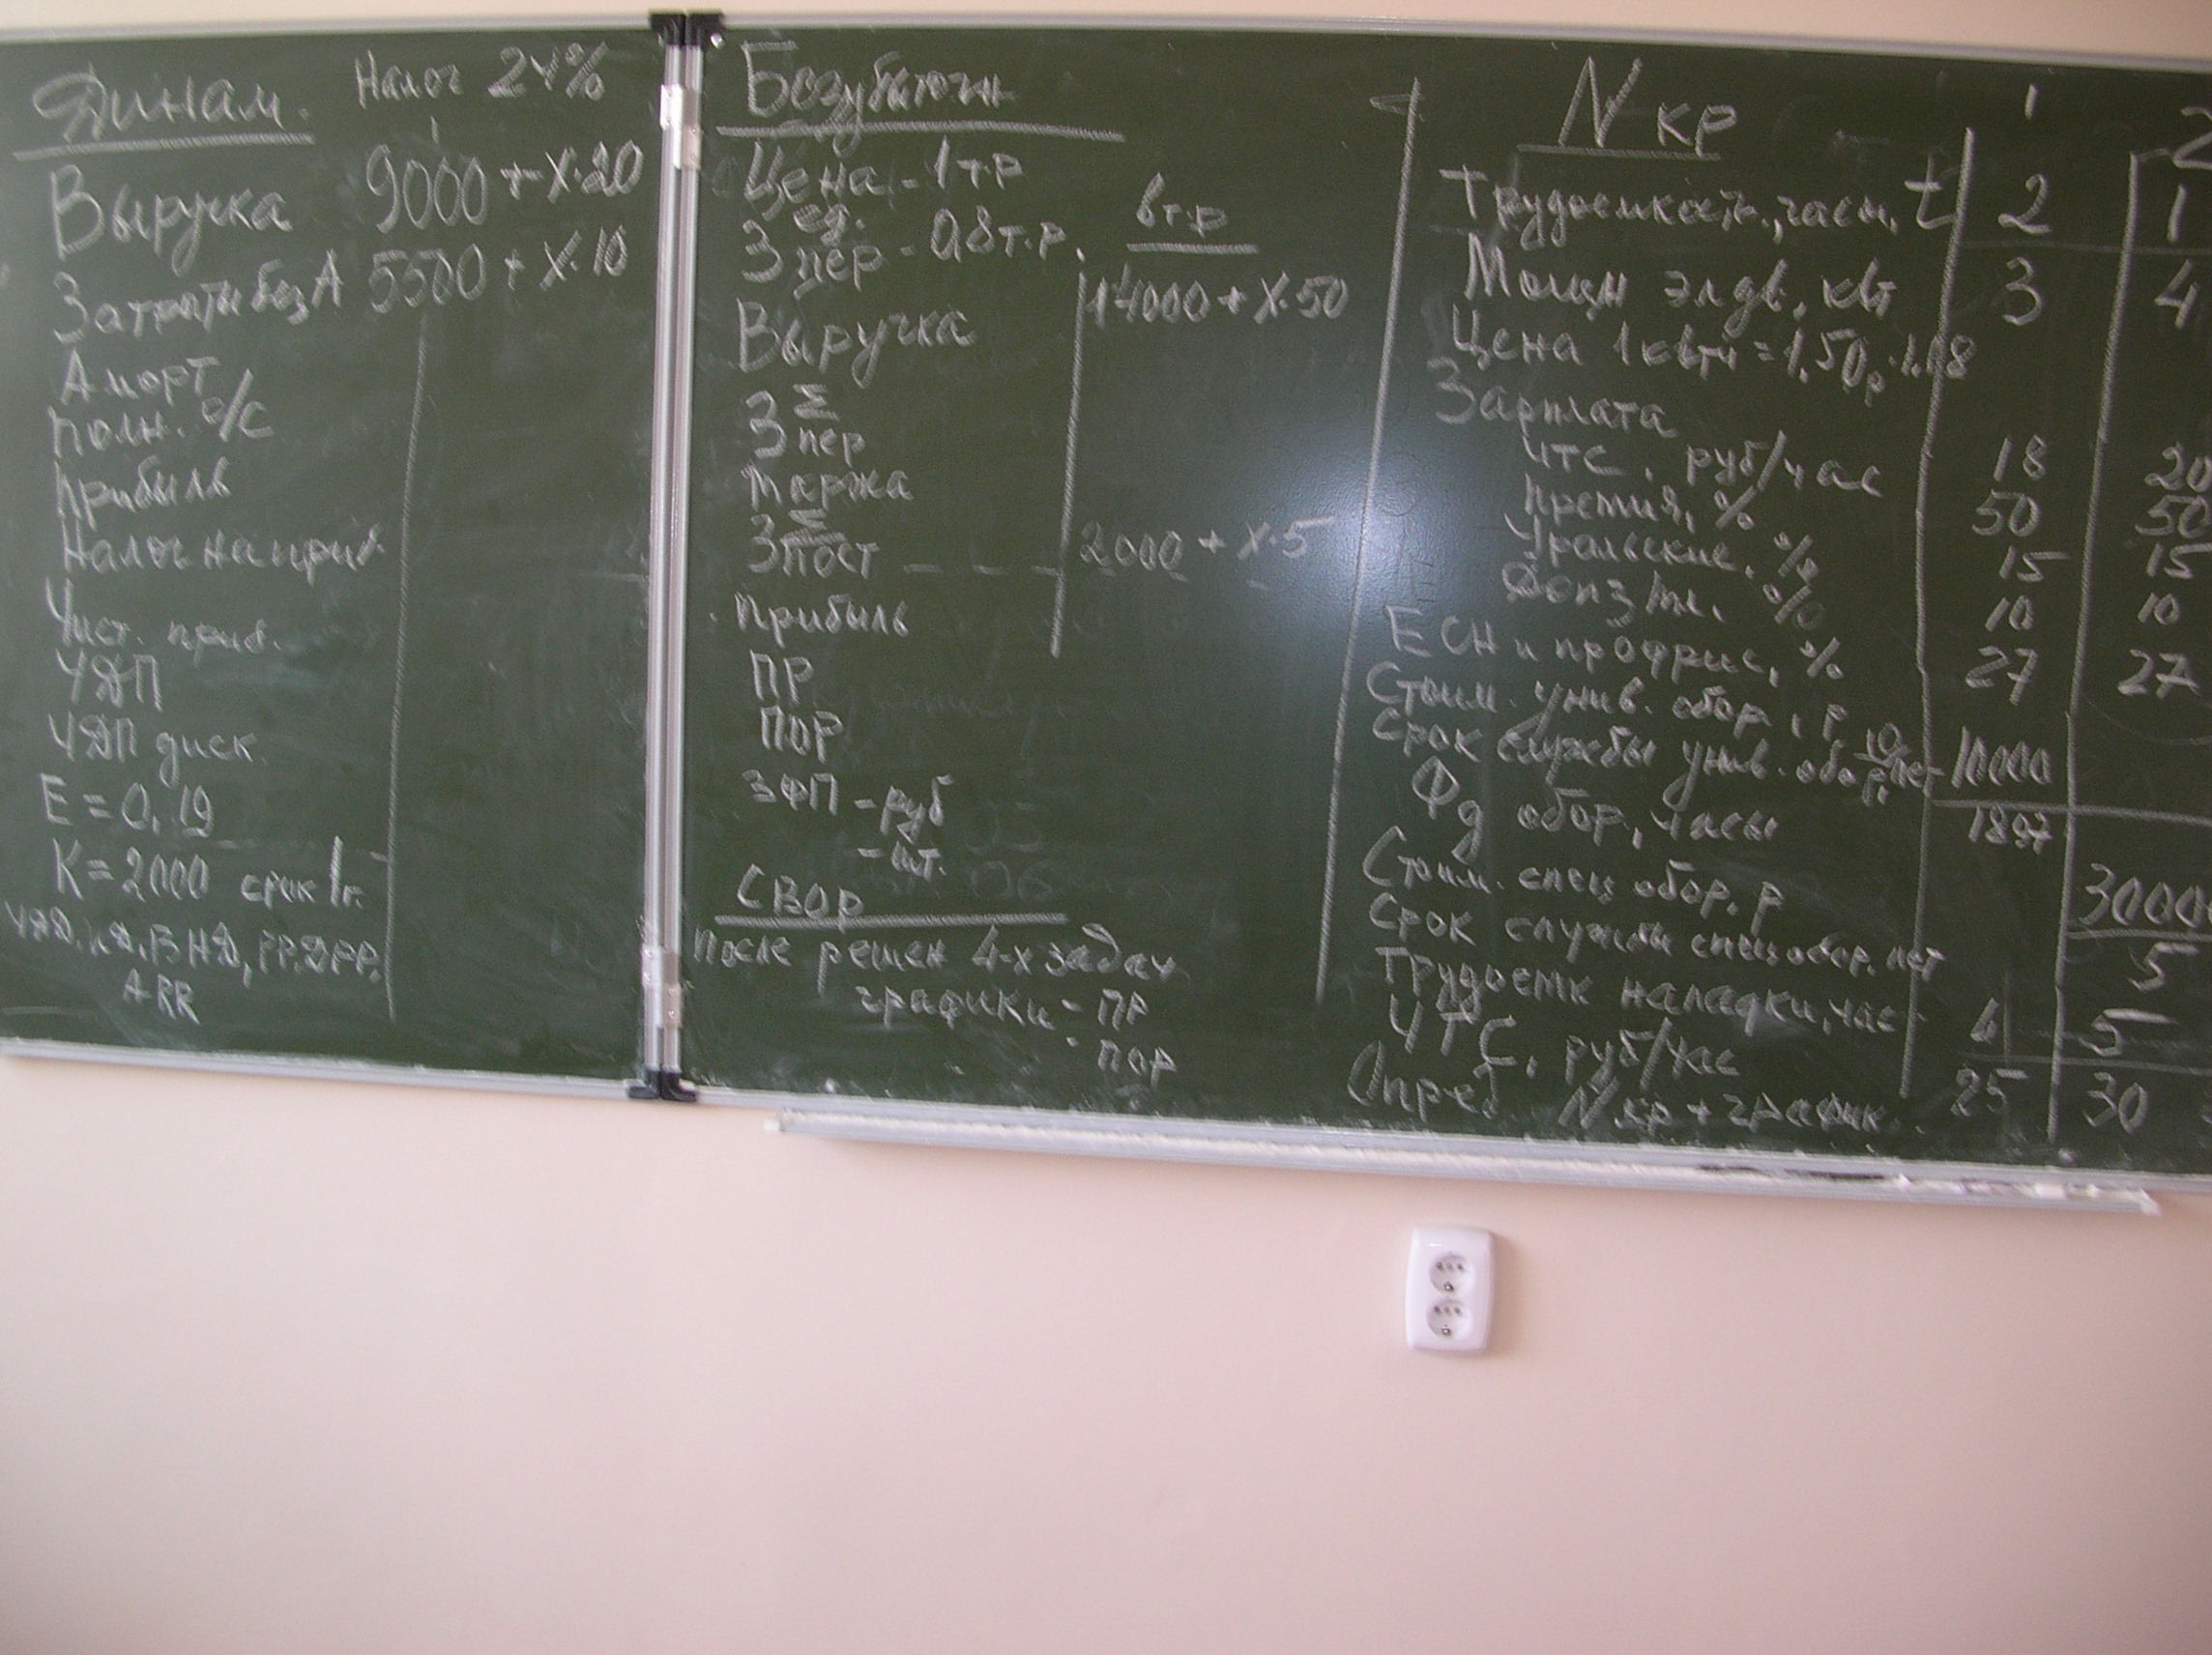 Динам. Налог 24%
1
Выручка 9000 + X·20
Затраты без А 5500 + X·10
Аморт
Полн. с/с
Прибыль
Налог на приб.
Чист. приб.
ЧДП
ЧДП диск.
E = 0,19
K = 2000 срок 1 г.
ЧДД, ИД, ВНД, PP, ДPP,
ARR
Безубыточн
Цена - 1 т.р
ед.
Зпер - 0,8 т.р.
в т.р
Выручка 14000 + X·50
З Σ пер
Маржа
З Σ пост 2000 + X·5
Прибыль
ПР
ПОР
ЗФП - руб
- шт.
СВОР
после решен 4-х задач
графики - ПР
- ПОР
N кр 1 2
Трудоемкость, часы, t 2 1
Мощн эл дв, квт 3 4
Цена 1 квтч = 1,50р·1.18
Зарплата
ЧТС, руб/час 18 20
Премия, % 50 50
Уральские, % 15 15
Доп з/пл, % 10 10
ЕСН и профрис, % 27 27
Стоим. унив. обор, р 10000
Срок службы унив. обор, лет 10
Фд обор, часы 1897
Стоим. спец обор. р 3000
Срок службы спец обор. лет 5
Трудоемк наладки, час 4 5
ЧТС, руб/час 25 30
Опред. N кр + график.